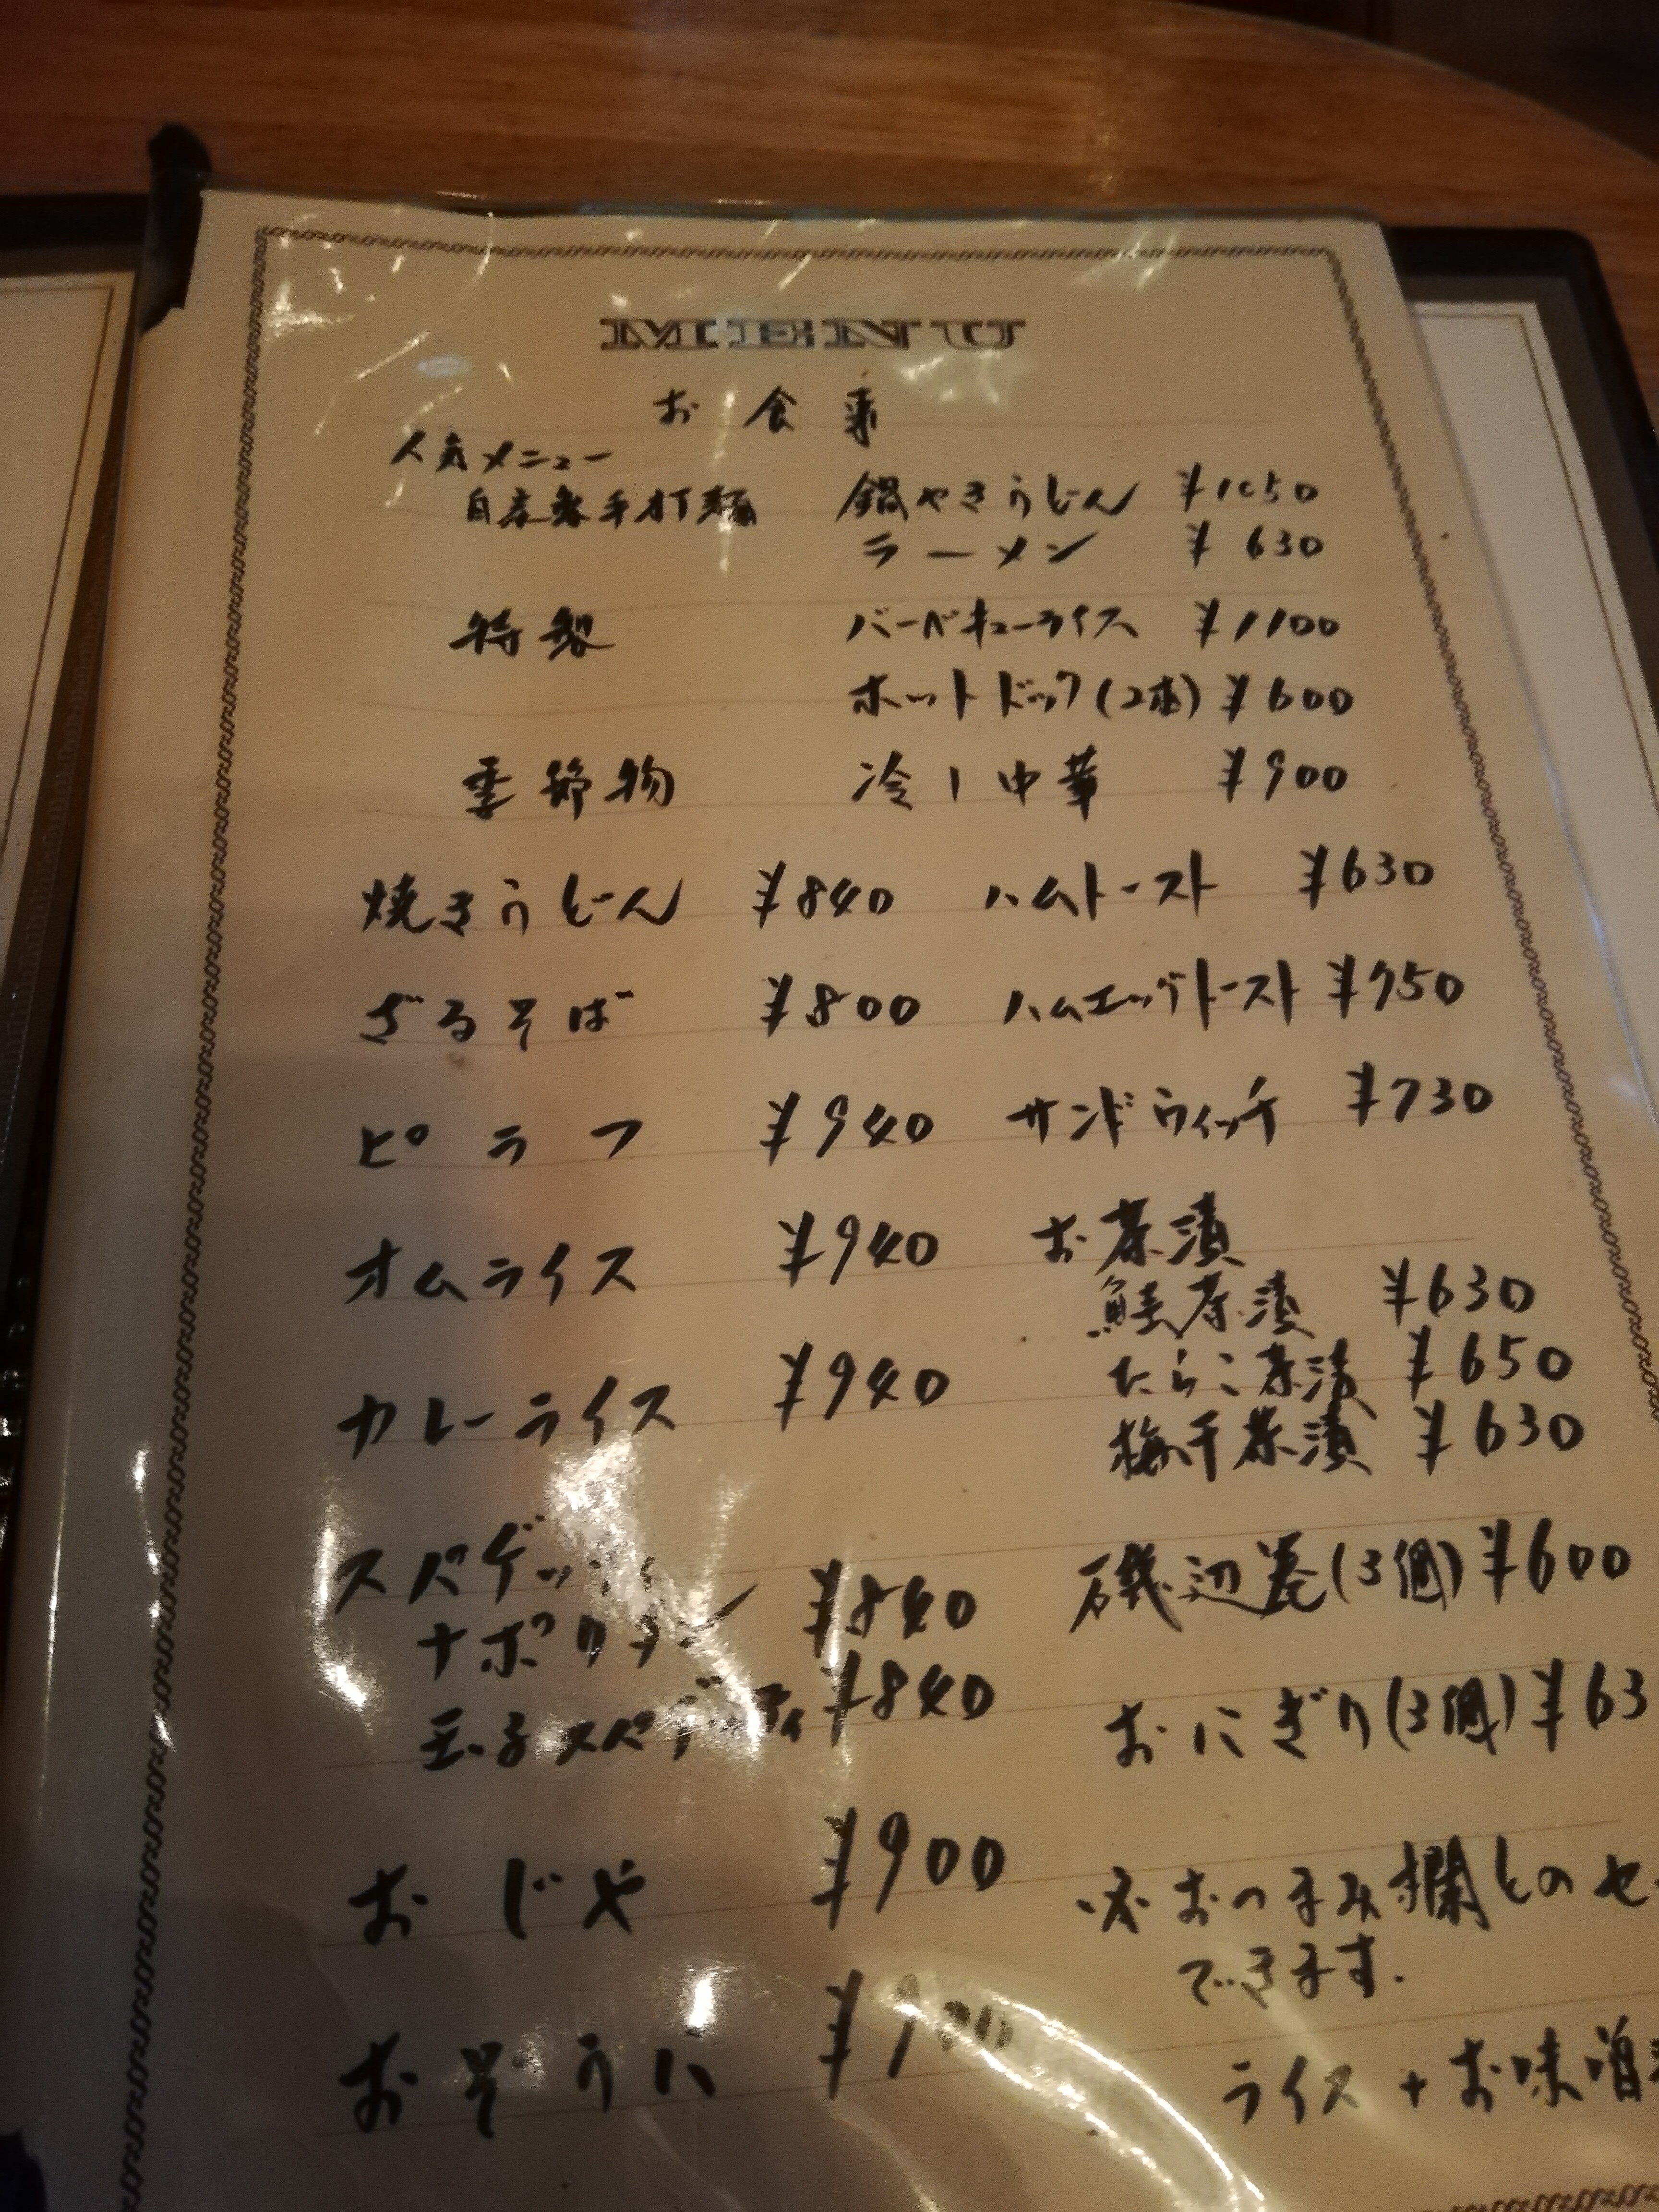 MENU
お食事
人気メニュー
自家製手打麺 鍋やきうどん ¥1050
ラーメン ¥630
特製 バーベキューライス ¥1100
ホットドック(2本) ¥600
季節物 冷し中華 ¥900
焼きうどん ¥840 ハムトースト ¥630
ざるそば ¥800 ハムエッグトースト ¥750
ピラフ ¥940 サンドウィッチ ¥730
オムライス ¥940 お茶漬
鮭茶漬 ¥630
カレーライス ¥940 たらこ茶漬 ¥650
梅干茶漬 ¥630
スパゲッ
ナポリタン ¥840 磯辺巻(3個) ¥600
玉子スパゲッティ ¥840 おにぎり(3個) ¥63
おじや ¥900 ※おつまみ欄とのセ
できます.
おぞうに ¥900 ライス+お味噌